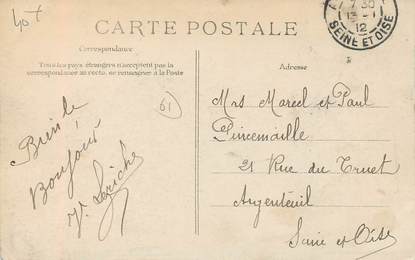 40 +
CARTE POSTALE
7 30
13 - 1
12
SEINE ET OISE
Correspondance
Tous les pays étrangers n'acceptent pas la
correspondance au recto, se renseigner à la Poste
Adresse
61
Bien le
Bonjour
V. Leriche
Mrs Marcel et Paul
Pincemaille
21 Rue du
Argenteuil
Seine et Oise